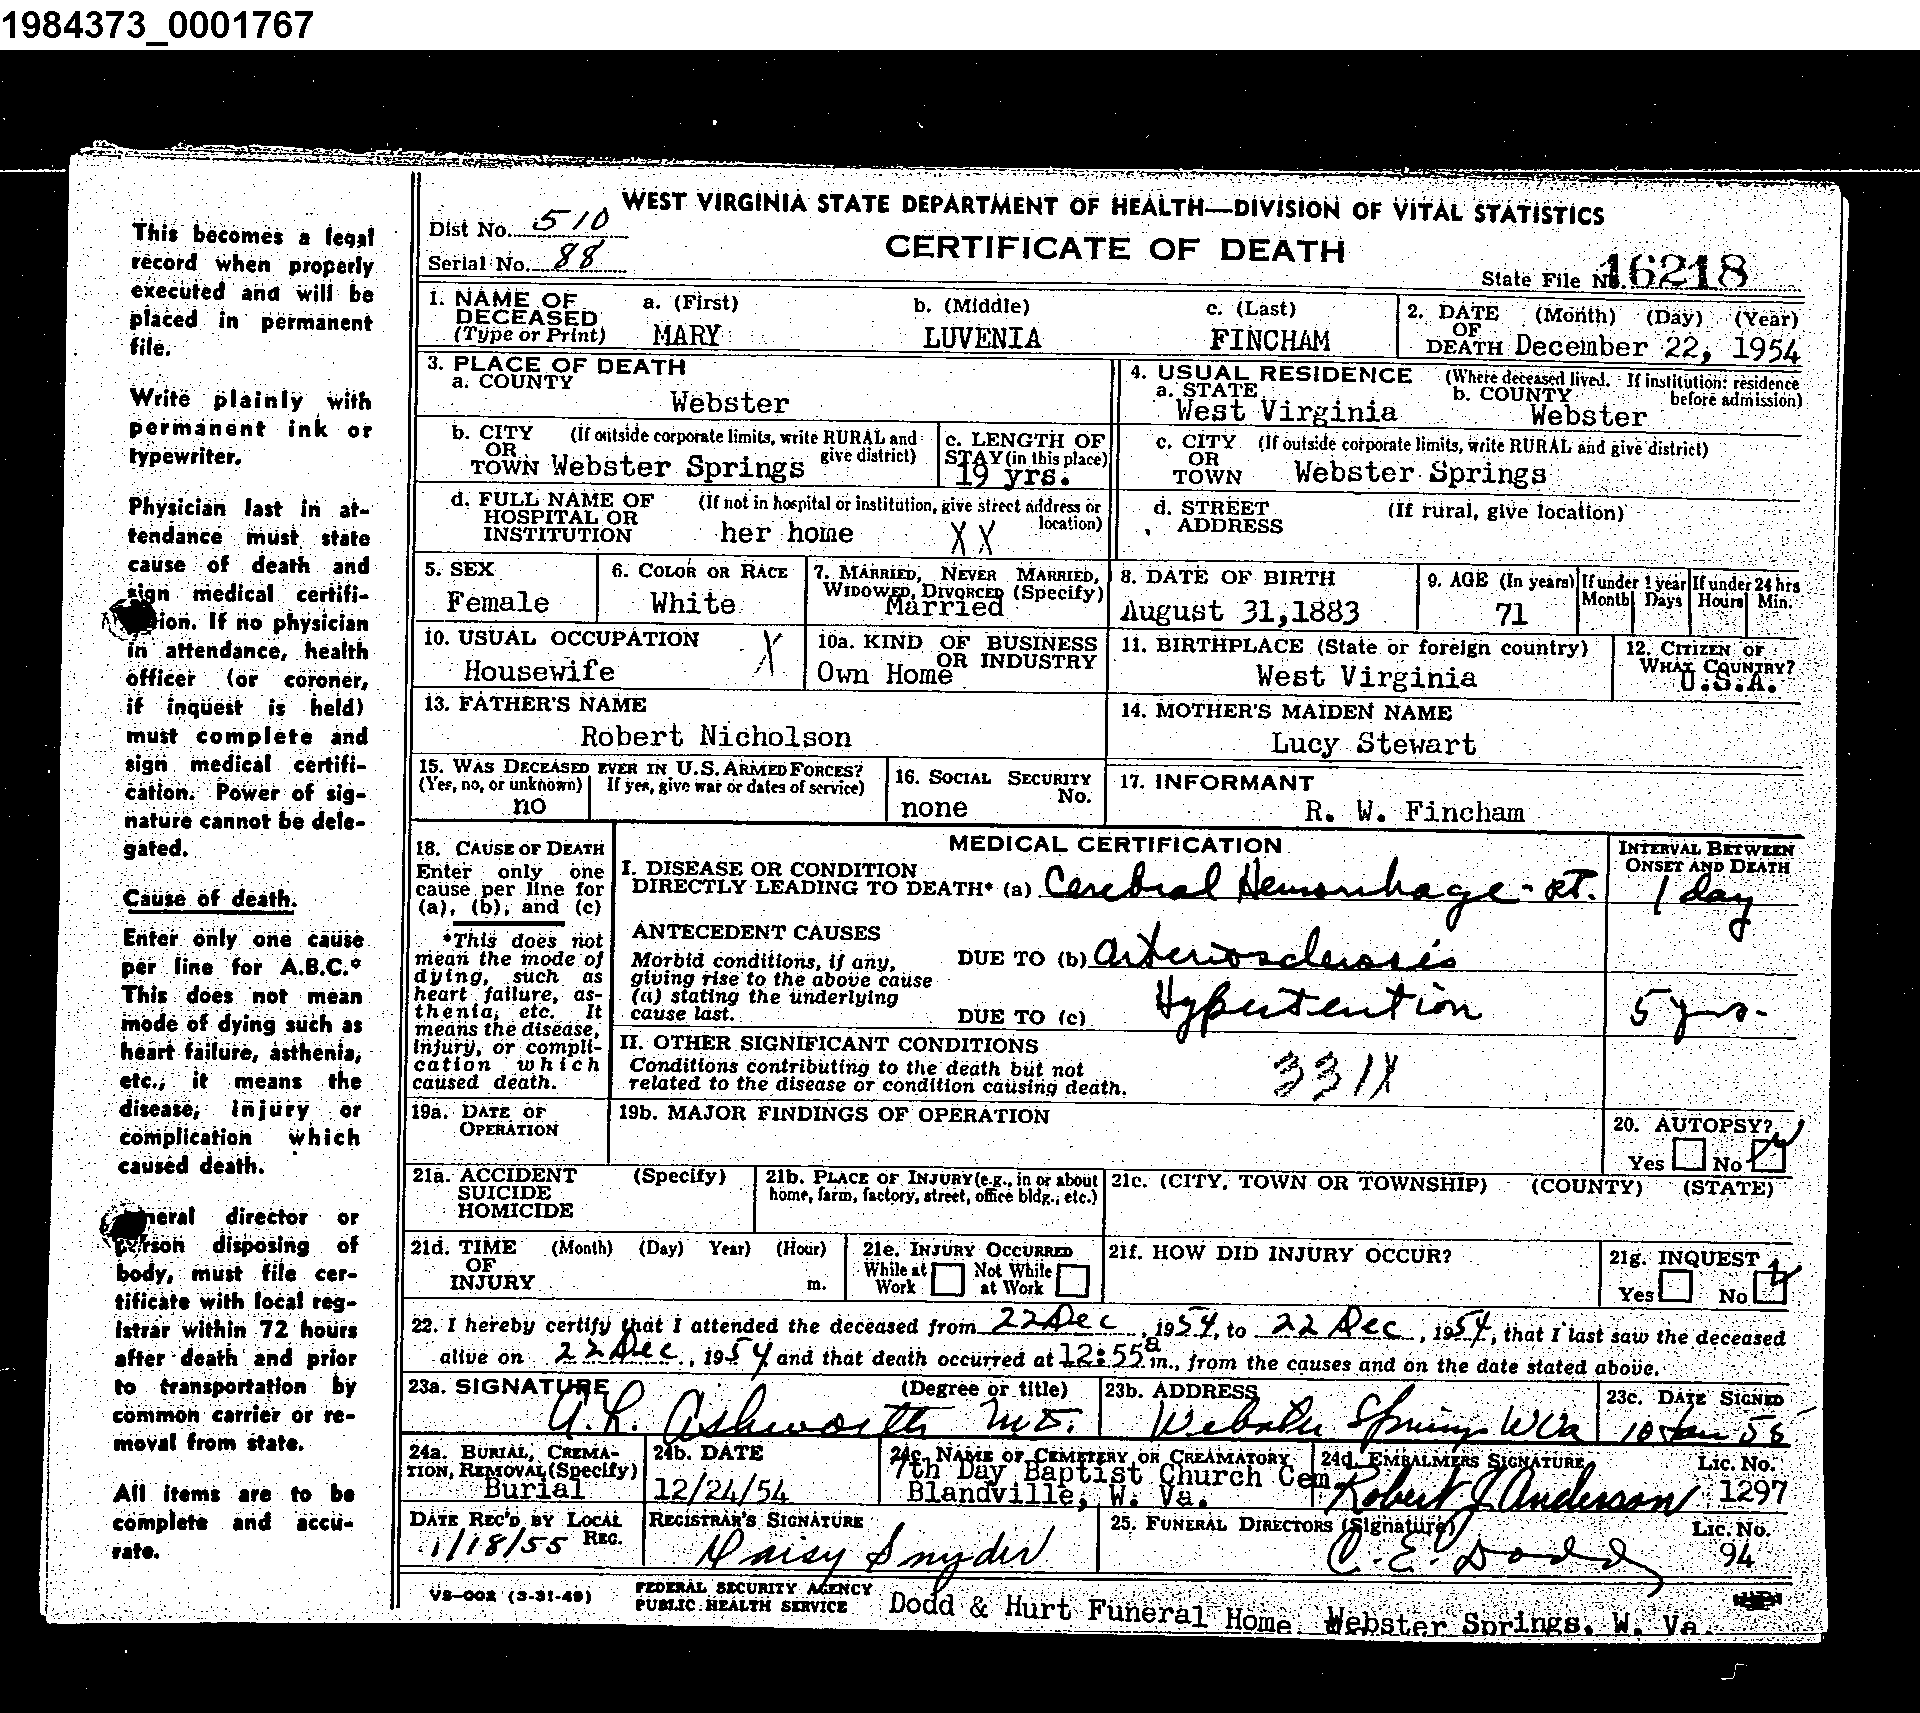 1984373_0001767
This becomes a legal
record when properly
executed and will be
placed in permanent
file.
Write plainly with
permanent ink or
typewriter.
Physician last in at-
tendance must state
cause of death and
sign medical certifi-
ion. If no physician
in attendance, health
officer (or coroner,
if inquest is held)
must complete and
sign medical certifi-
cation. Power of sig-
nature cannot be dele-
gated.
Cause of death.
Enter only one cause
per line for A.B.C.*
This does not mean
mode of dying such as
heart failure, asthenia,
etc., it means the
disease, injury or
complication which
caused death.
neral director or
person disposing of
body, must file cer-
tificate with local reg-
istrar within 72 hours
after death and prior
to transportation by
common carrier or re-
moval from state.
All items are to be
complete and accu-
rate.
WEST VIRGINIA STATE DEPARTMENT OF HEALTH—DIVISION OF VITAL STATISTICS
Dist No. 510
CERTIFICATE OF DEATH
Serial No. 88
State File No. 16218
1. NAME OF DECEASED (Type or Print) a. (First) MARY b. (Middle) LUVENIA c. (Last) FINCHAM
2. DATE OF DEATH (Month) (Day) (Year) December 22, 1954
3. PLACE OF DEATH
a. COUNTY Webster
4. USUAL RESIDENCE (Where deceased lived. If institution: residence before admission)
a. STATE West Virginia b. COUNTY Webster
b. CITY OR TOWN (If outside corporate limits, write RURAL and give district) Webster Springs
c. LENGTH OF STAY (in this place) 19 yrs.
c. CITY OR TOWN (If outside corporate limits, write RURAL and give district) Webster Springs
d. FULL NAME OF HOSPITAL OR INSTITUTION (If not in hospital or institution, give street address or location) her home XX
d. STREET ADDRESS (If rural, give location)
5. SEX Female
6. COLOR OR RACE White
7. MARRIED, NEVER MARRIED, WIDOWED, DIVORCED (Specify) Married
8. DATE OF BIRTH August 31,1883
9. AGE (In years) 71 If under 1 year Month Days If under 24 hrs Hours Min.
10. USUAL OCCUPATION Housewife X
10a. KIND OF BUSINESS OR INDUSTRY Own Home
11. BIRTHPLACE (State or foreign country) West Virginia
12. CITIZEN OF WHAT COUNTRY? U.S.A.
13. FATHER'S NAME Robert Nicholson
14. MOTHER'S MAIDEN NAME Lucy Stewart
15. WAS DECEASED EVER IN U.S. ARMED FORCES? (Yes, no, or unknown) no If yes, give war or dates of service)
16. SOCIAL SECURITY No. none
17. INFORMANT R. W. Fincham
18. CAUSE OF DEATH
Enter only one
cause per line for
(a), (b), and (c)
*This does not
mean the mode of
dying, such as
heart failure, as-
thenia, etc. It
means the disease,
injury, or compli-
cation which
caused death.
MEDICAL CERTIFICATION
INTERVAL BETWEEN ONSET AND DEATH
I. DISEASE OR CONDITION
DIRECTLY LEADING TO DEATH* (a) Cerebral Hemorrhage - rt. 1 day
ANTECEDENT CAUSES
Morbid conditions, if any,
giving rise to the above cause
(a) stating the underlying
cause last.
DUE TO (b) Arteriosclerosis
DUE TO (c) Hypertention 5 yrs.
II. OTHER SIGNIFICANT CONDITIONS
Conditions contributing to the death but not
related to the disease or condition causing death.
331X
19a. DATE OF OPERATION
19b. MAJOR FINDINGS OF OPERATION
20. AUTOPSY? Yes No
21a. ACCIDENT SUICIDE HOMICIDE (Specify)
21b. PLACE OF INJURY (e.g., in or about home, farm, factory, street, office bldg., etc.)
21c. (CITY, TOWN OR TOWNSHIP) (COUNTY) (STATE)
21d. TIME OF INJURY (Month) (Day) Year) (Hour) m.
21e. INJURY OCCURRED While at Work Not While at Work
21f. HOW DID INJURY OCCUR?
21g. INQUEST Yes No
22. I hereby certify that I attended the deceased from 22 Dec, 1954, to 22 Dec, 1954, that I last saw the deceased
alive on 22 Dec., 1954 and that death occurred at 12:55 a m., from the causes and on the date stated above.
23a. SIGNATURE (Degree or title) A. L. Ashworth MD.
23b. ADDRESS Webster Springs W Va
23c. DATE SIGNED 10 Jan 55
24a. BURIAL, CREMATION, REMOVAL (Specify) Burial
24b. DATE 12/24/54
24c. NAME OF CEMETERY OR CREAMATORY 7th Day Baptist Church Cem Blandville, W. Va.
24d. EMBALMERS SIGNATURE Robert J Anderson Lic. No. 1297
DATE REC'D BY LOCAL REG. 1/18/55
REGISTRAR'S SIGNATURE Daisy Snyder
25. FUNERAL DIRECTORS (Signature) C. E. Dodd Lic. No. 94
VS-002 (3-31-49)
FEDERAL SECURITY AGENCY
PUBLIC HEALTH SERVICE
Dodd & Hurt Funeral Home, Webster Springs, W. Va.